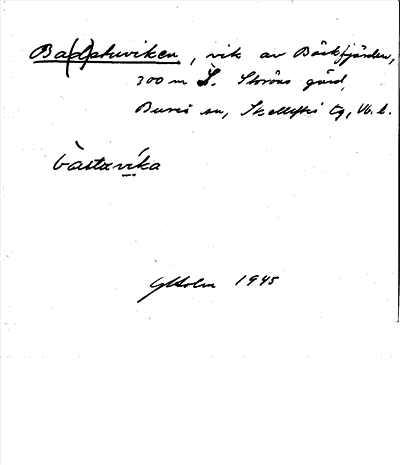 Ba(d)stuviken, vik av Bäckfjärden,
300 m S. Storöns gård,
Bureå sn, Skellefteå tg, Vb. l.
bàstavíka
GHolm 1945